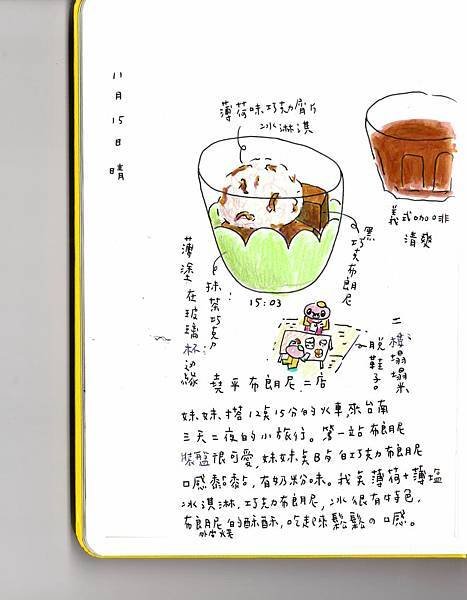 11月15日 晴
薄荷味巧克力屑片
冰淋淇
義式咖啡
清爽
黑巧克布朗尼
抹茶巧克力
薄塗在玻璃杯边緣
15:03
二樓塌塌米
脫鞋子。
堯平布朗尼二店
妹妹搭12点15分的火車,來台南
三天二夜的小旅行。第一站布朗尼
裝盤很可愛,妹妹点白巧克力布朗尼
口感黏黏,有奶粉味。我点薄荷+薄塩
冰淇淋,巧克力布朗尼,冰很有特色,
布朗尼的酥酥,吃起來鬆鬆の口感。
外皮